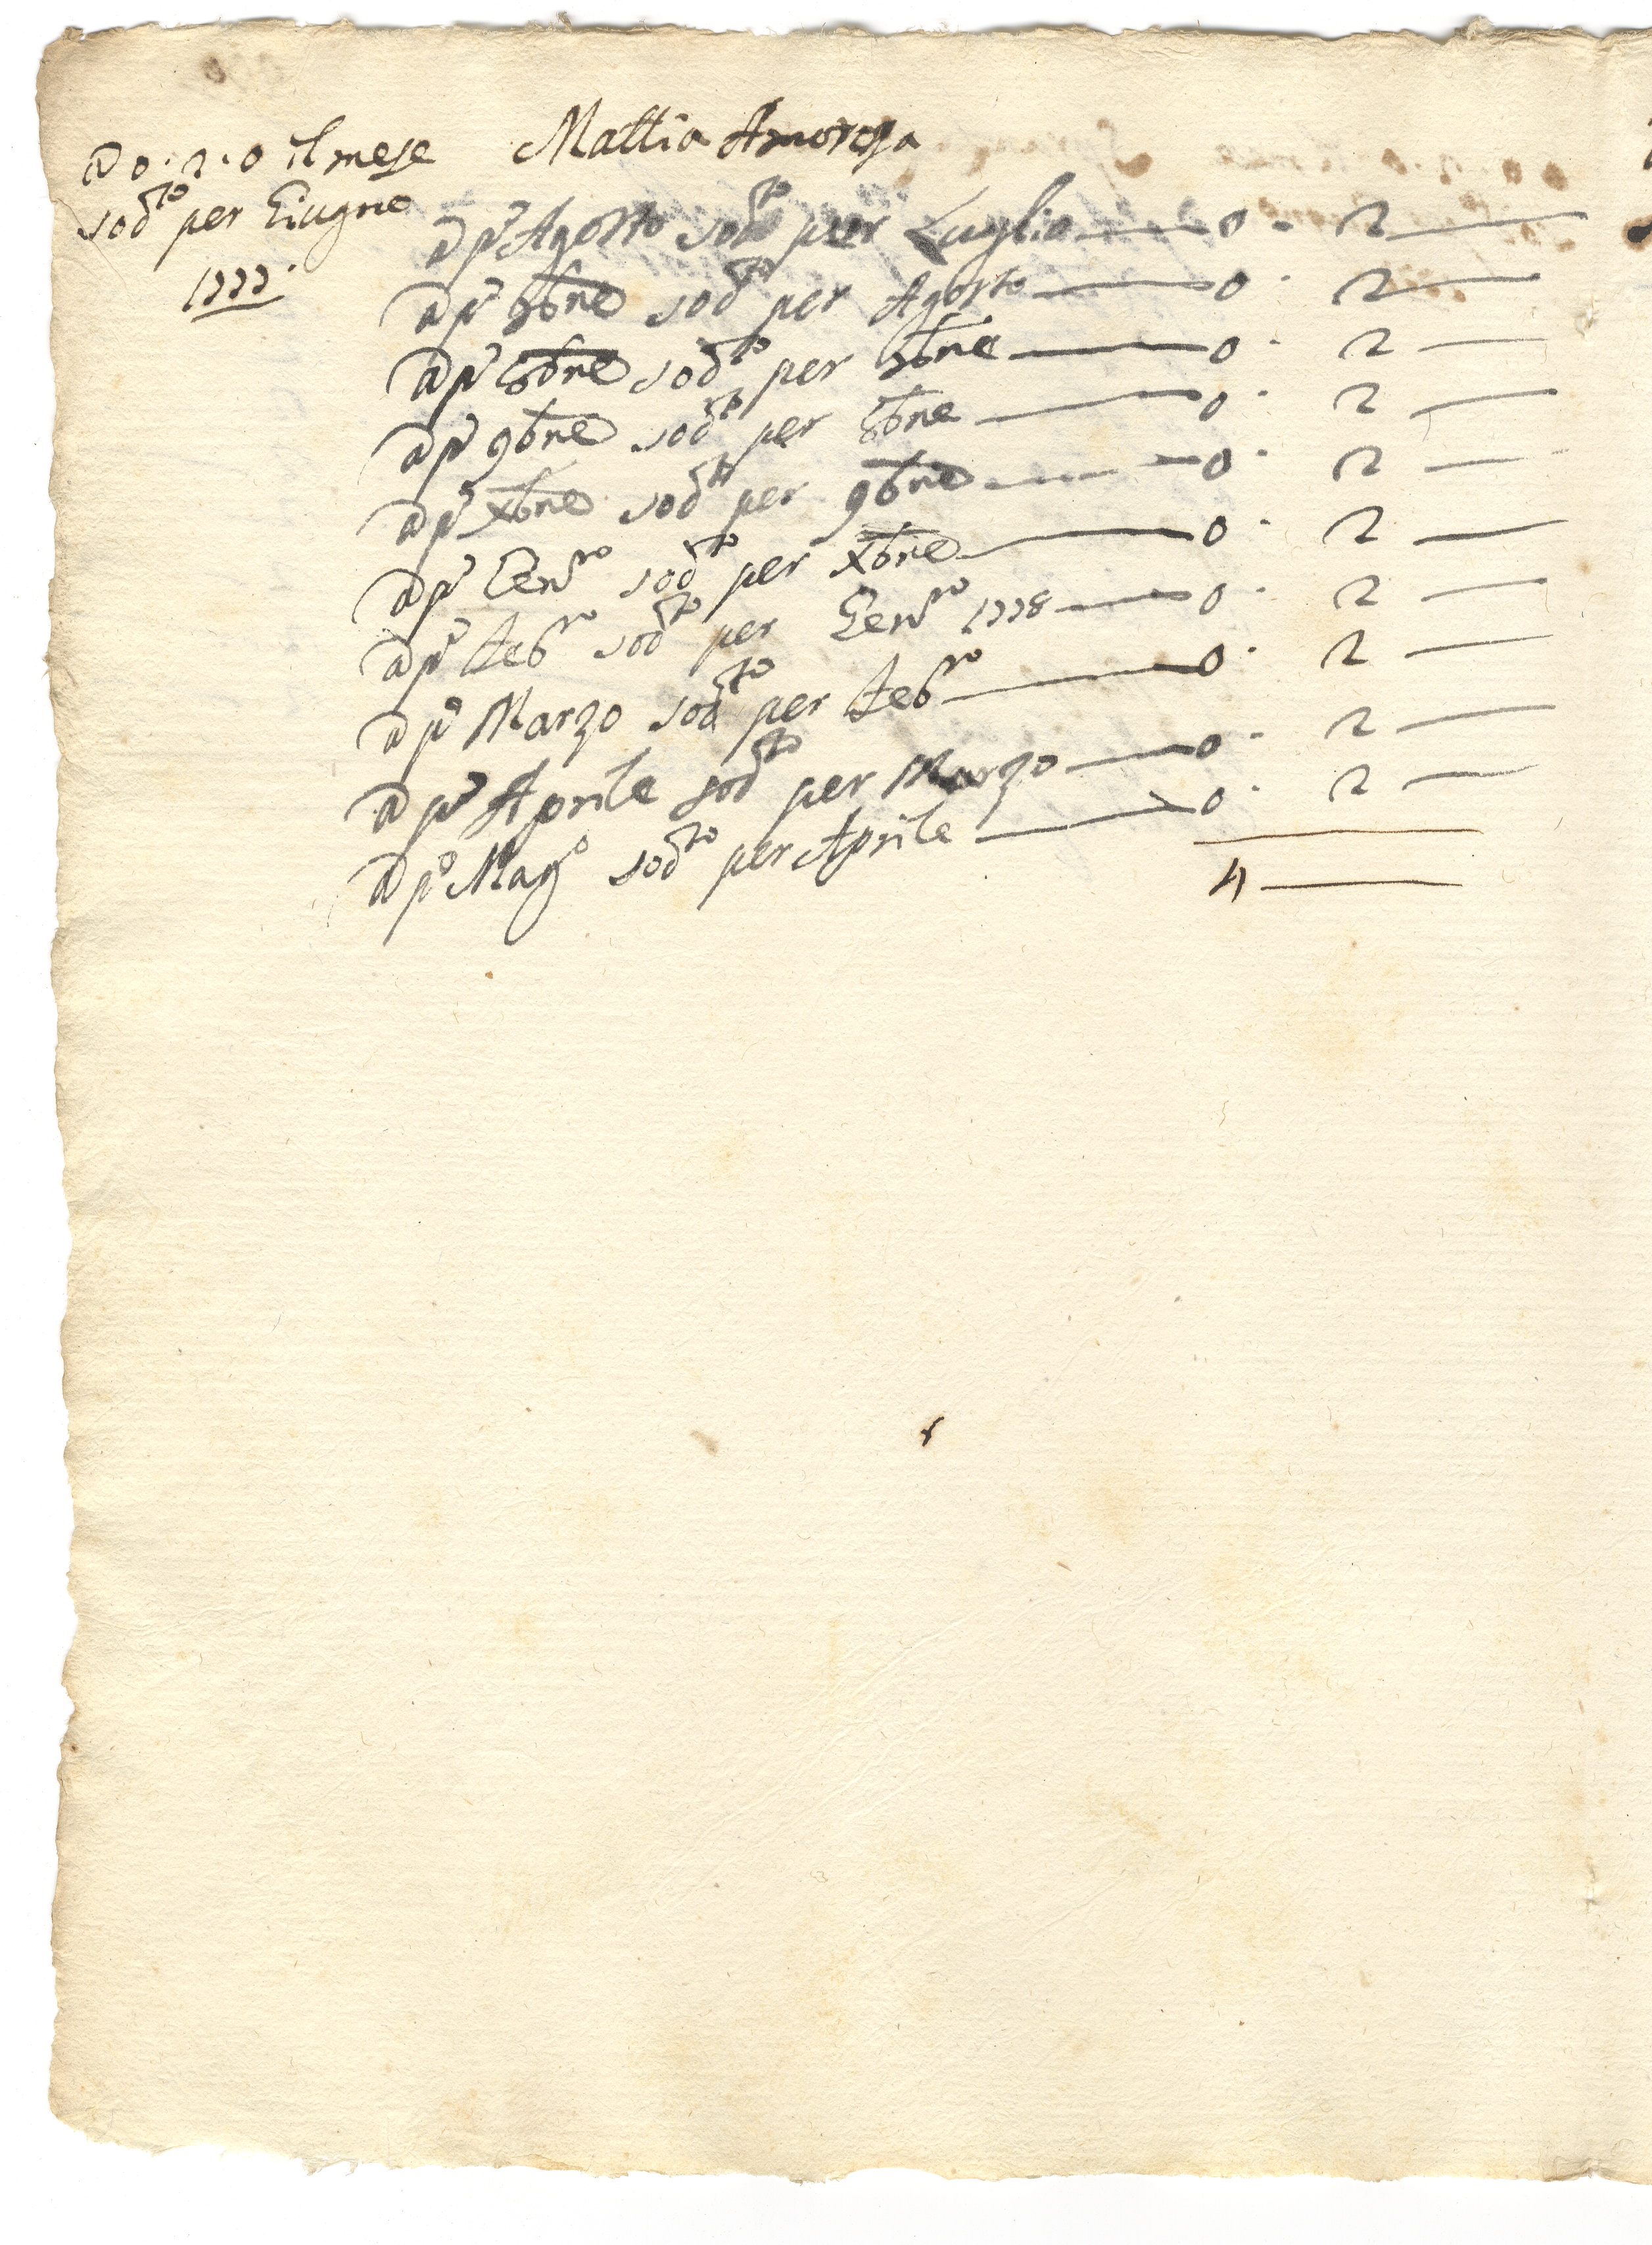 a 0.2.0 il mese
sodto per Giugno
1777.
Mattia Amorosa
a po Agosto sodto per Luglio — 0 - 2 —
a po 7bre sodto per Agosto — 0 - 2 —
a po 8bre sodto per 7bre — 0 - 2 —
a po 9bre sodto per 8bre — 0 - 2 —
a po Xbre sodto per 9bre — 0 - 2 —
a po Genro sodto per Xbre — 0 - 2 —
a po Febro sodto per Genro 1778 — 0 - 2 —
a po Marzo sodto per Febro — 0 - 2 —
a po Aprile sodto per Marzo — 0 - 2 —
a po Mago sodto per Aprile — 0 - 2 —
4 —